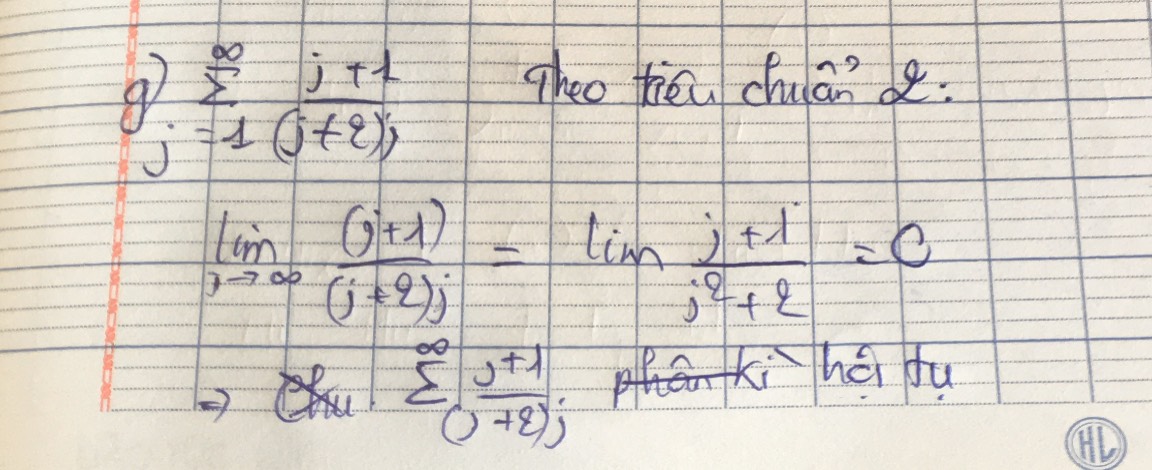 g) ∞ Σ j=1 (j+1)/((j+2)j) Theo tiêu chuẩn 2:
lim j→∞ (j+1)/((j+2)j) = lim (j+1)/(j²+2) = 0
⇒ ∞ Σ (j+1)/((j+2)j) phân kì hội tụ
HL